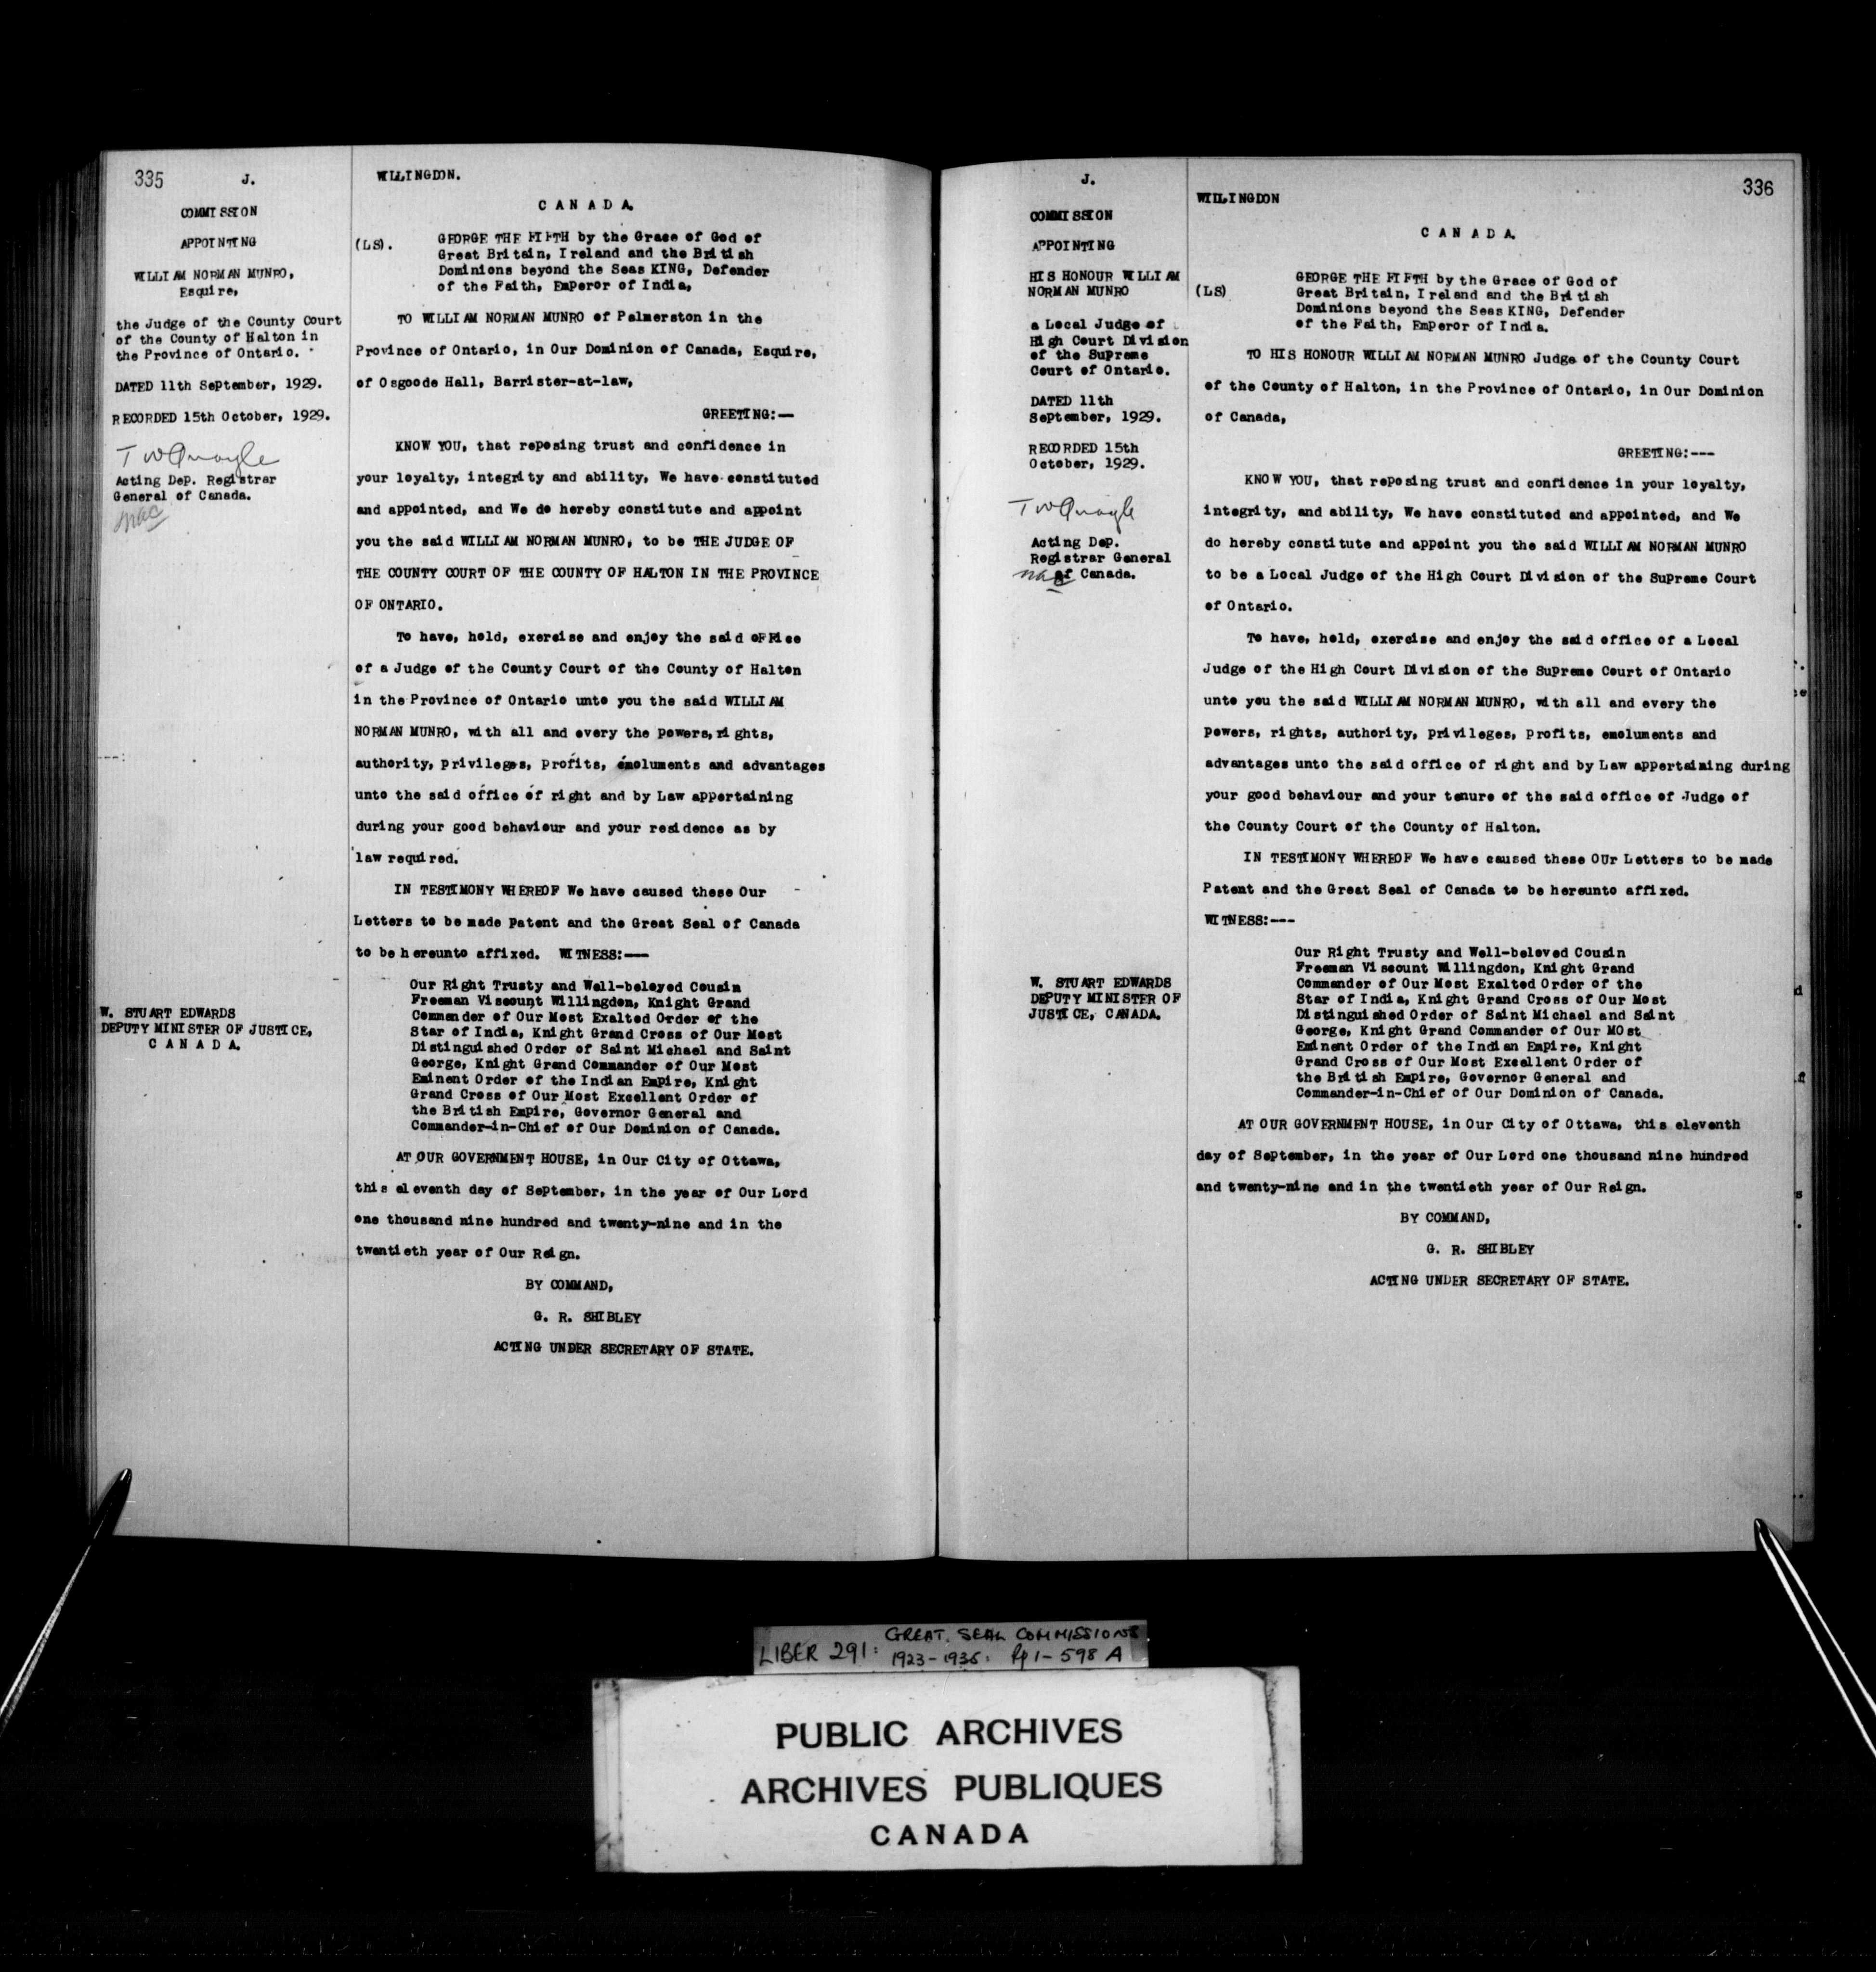 335
J.
COMMISSION
APPOINTING
WILLIAM NORMAN MUNRO,
Esquire,
the Judge of the County Court
of the County of Halton in
the Province of Ontario.
DATED 11th September, 1929.
RECORDED 15th October, 1929.
T W Quayle
Acting Dep. Registrar
General of Canada.
W. STUART EDWARDS
DEPUTY MINISTER OF JUSTICE,
CANADA.
WILLINGDON.
CANADA.
(LS).
GEORGE THE FIFTH by the Grace of God of
Great Britain, Ireland and the British
Dominions beyond the Seas KING, Defender
of the Faith, Emperor of India,
TO WILLIAM NORMAN MUNRO of Palmerston in the
Province of Ontario, in Our Dominion of Canada, Esquire,
of Osgoode Hall, Barrister-at-law,
GREETING:—
KNOW YOU, that reposing trust and confidence in
your loyalty, integrity and ability, We have constituted
and appointed, and We do hereby constitute and appoint
you the said WILLIAM NORMAN MUNRO, to be THE JUDGE OF
THE COUNTY COURT OF THE COUNTY OF HALTON IN THE PROVINCE
OF ONTARIO.
To have, hold, exercise and enjoy the said office
of a Judge of the County Court of the County of Halton
in the Province of Ontario unto you the said WILLIAM
NORMAN MUNRO, with all and every the powers, rights,
authority, privileges, profits, emoluments and advantages
unto the said office of right and by Law appertaining
during your good behaviour and your residence as by
law required.
IN TESTIMONY WHEREOF We have caused these Our
Letters to be made patent and the Great Seal of Canada
to be hereunto affixed. WITNESS:—
Our Right Trusty and Well-beloved Cousin
Freeman Viscount Willingdon, Knight Grand
Commander of Our Most Exalted Order of the
Star of India, Knight Grand Cross of Our Most
Distinguished Order of Saint Michael and Saint
George, Knight Grand Commander of Our Most
Eminent Order of the Indian Empire, Knight
Grand Cross of Our Most Excellent Order of
the British Empire, Governor General and
Commander-in-Chief of Our Dominion of Canada.
AT OUR GOVERNMENT HOUSE, in Our City of Ottawa,
this eleventh day of September, in the year of Our Lord
one thousand nine hundred and twenty-nine and in the
twentieth year of Our Reign.
BY COMMAND,
G. R. SHIBLEY
ACTING UNDER SECRETARY OF STATE.
J.
COMMISSION
APPOINTING
HIS HONOUR WILLIAM
NORMAN MUNRO
a Local Judge of
High Court Division
of the Supreme
Court of Ontario.
DATED 11th
September, 1929.
RECORDED 15th
October, 1929.
T W Quayle
Acting Dep.
Registrar General
of Canada.
W. STUART EDWARDS
DEPUTY MINISTER OF
JUSTICE, CANADA.
336
WILLINGDON
CANADA.
(LS)
GEORGE THE FIFTH by the Grace of God of
Great Britain, Ireland and the British
Dominions beyond the Seas KING, Defender
of the Faith, Emperor of India.
TO HIS HONOUR WILLIAM NORMAN MUNRO Judge of the County Court
of the County of Halton, in the Province of Ontario, in Our Dominion
of Canada,
GREETING:---
KNOW YOU, that reposing trust and confidence in your loyalty,
integrity, and ability, We have constituted and appointed, and We
do hereby constitute and appoint you the said WILLIAM NORMAN MUNRO
to be a Local Judge of the High Court Division of the Supreme Court
of Ontario.
To have, hold, exercise and enjoy the said office of a Local
Judge of the High Court Division of the Supreme Court of Ontario
unto you the said WILLIAM NORMAN MUNRO, with all and every the
powers, rights, authority, privileges, profits, emoluments and
advantages unto the said office of right and by Law appertaining during
your good behaviour and your tenure of the said office of Judge of
the County Court of the County of Halton.
IN TESTIMONY WHEREOF We have caused these OUr Letters to be made
Patent and the Great Seal of Canada to be hereunto affixed.
WITNESS:---
Our Right Trusty and Well-beloved Cousin
Freeman Viscount Willingdon, Knight Grand
Commander of Our Most Exalted Order of the
Star of India, Knight Grand Cross of Our Most
Distinguished Order of Saint Michael and Saint
George, Knight Grand Commander of Our MOst
Eminent Order of the Indian Empire, Knight
Grand Cross of Our Most Excellent Order of
the British Empire, Governor General and
Commander-in-Chief of Our Dominion of Canada.
AT OUR GOVERNMENT HOUSE, in Our City of Ottawa, this eleventh
day of September, in the year of Our Lord one thousand nine hundred
and twenty-nine and in the twentieth year of Our Reign.
BY COMMAND,
G. R. SHIBLEY
ACTING UNDER SECRETARY OF STATE.
LIBER 291: GREAT SEAL COMMISSIONS
1923-1935: Pp 1-598 A
PUBLIC ARCHIVES
ARCHIVES PUBLIQUES
CANADA